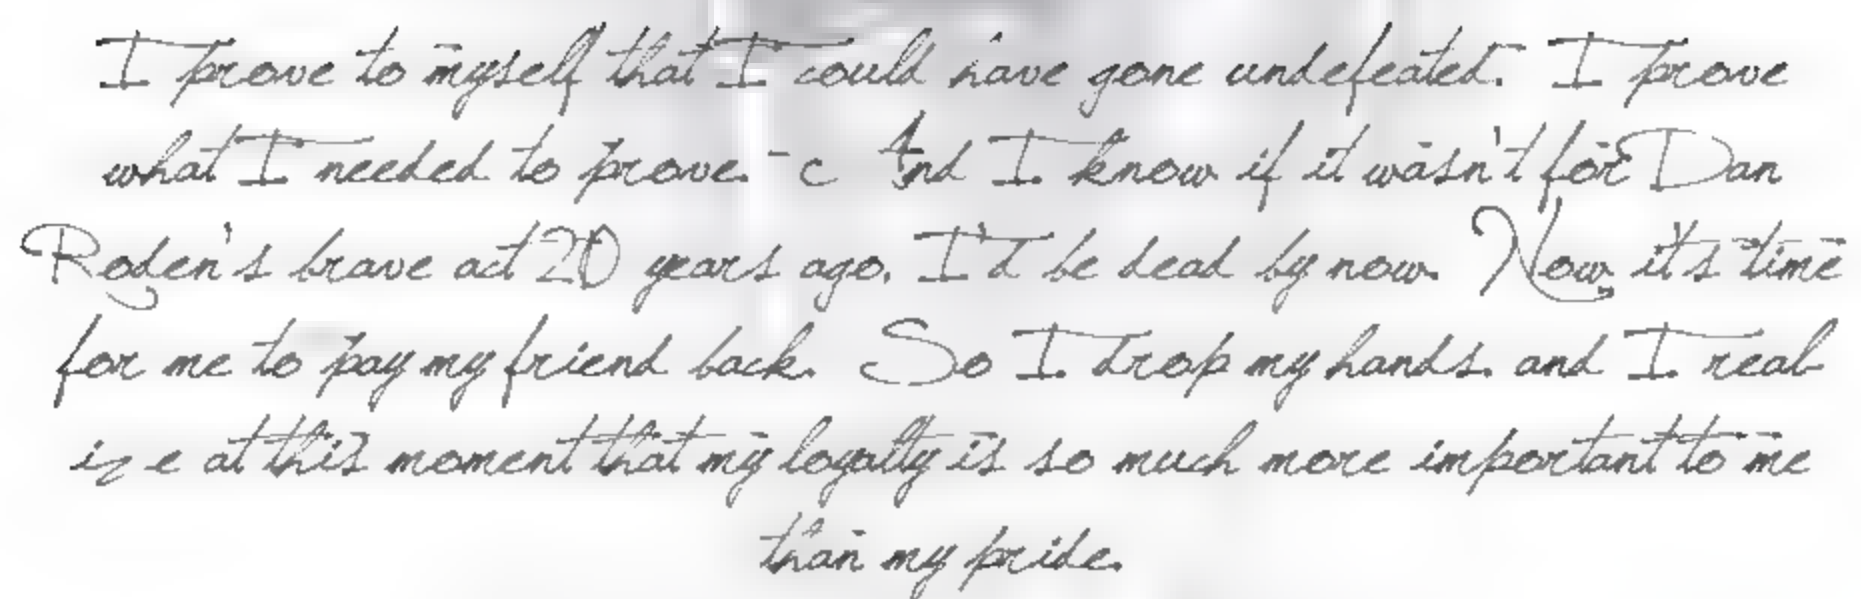 I prove to myself that I could have gone undefeated. I prove
what I needed to prove. - c And I know if it wasn't for Dan
Roden's brave act 20 years ago, I'd be dead by now. Now, it's time
for me to pay my friend back. So I drop my hands. and I real
ize at this moment that my loyalty is so much more important to me
than my pride.